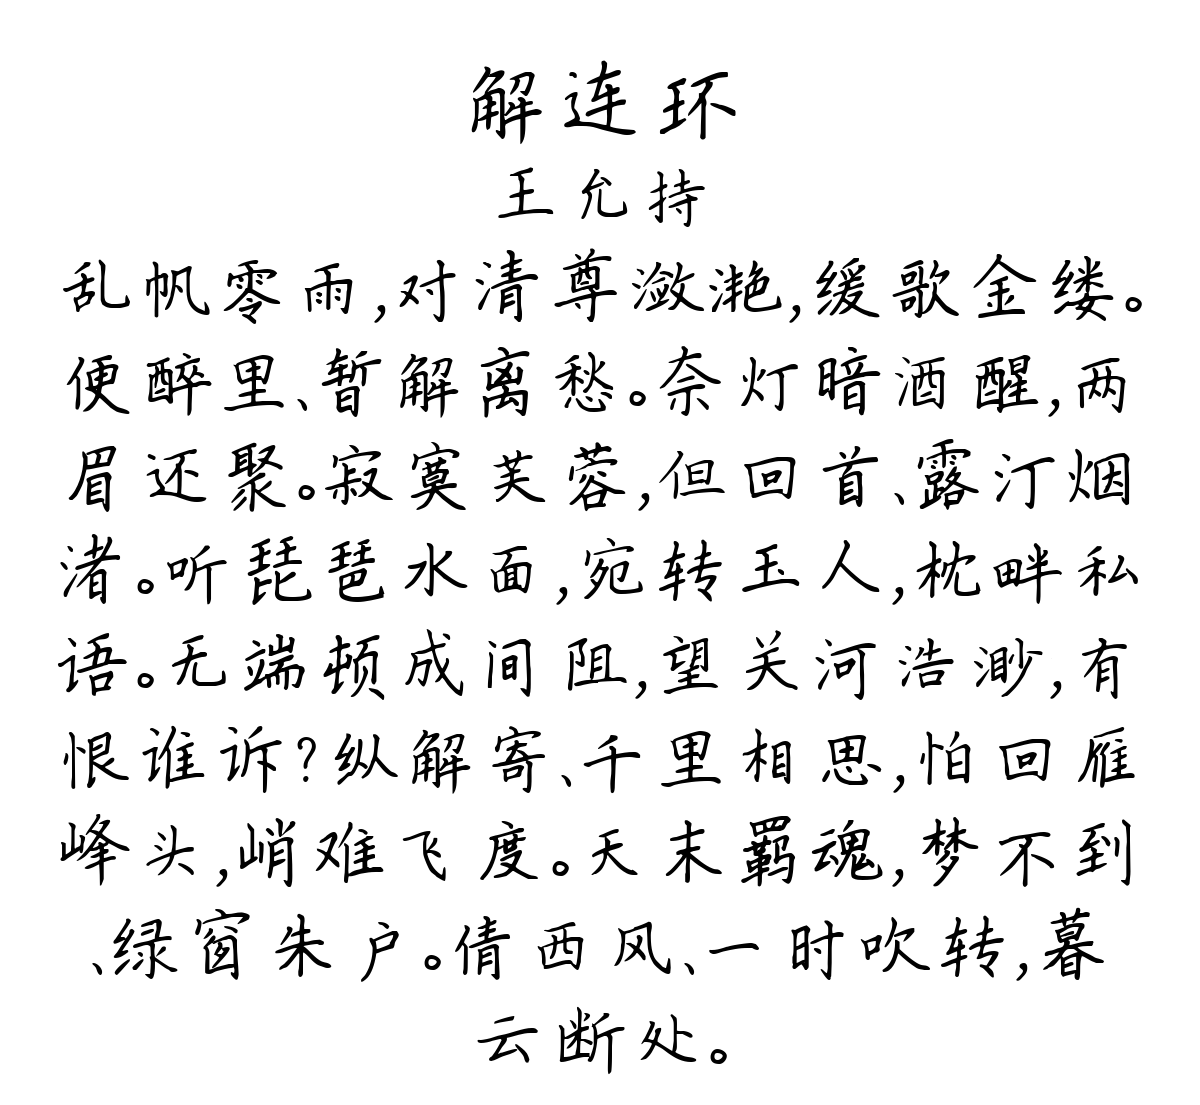 解连环
王允持
乱帆零雨,对清尊潋滟,缓歌金缕。
便醉里、暂解离愁。奈灯暗酒醒,两
眉还聚。寂寞芙蓉,但回首、露汀烟
渚。听琵琶水面,宛转玉人,枕畔私
语。无端顿成间阻,望关河浩渺,有
恨谁诉?纵解寄、千里相思,怕回雁
峰头,峭难飞度。天末羁魂,梦不到
、绿窗朱户。倩西风、一时吹转,暮
云断处。